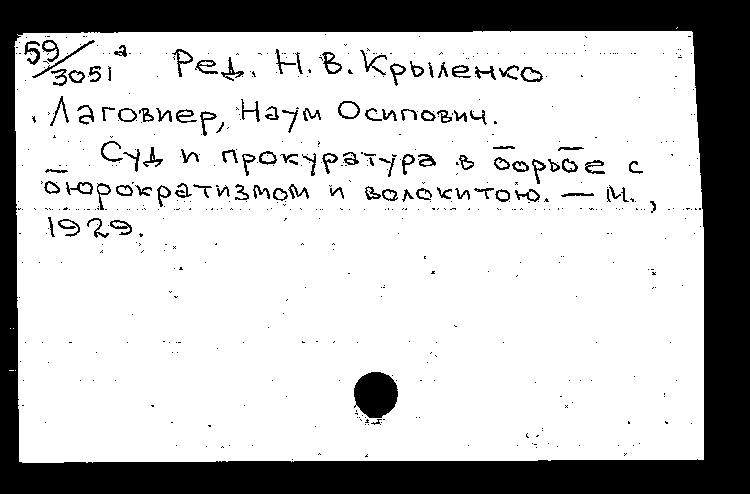 59/3051а Ред. Н. В. Крыленко
Лаговиер, Наум Осипович.
Суд и прокуратура в борьбе с
бюрократизмом и волокитою. — М.,
1929.